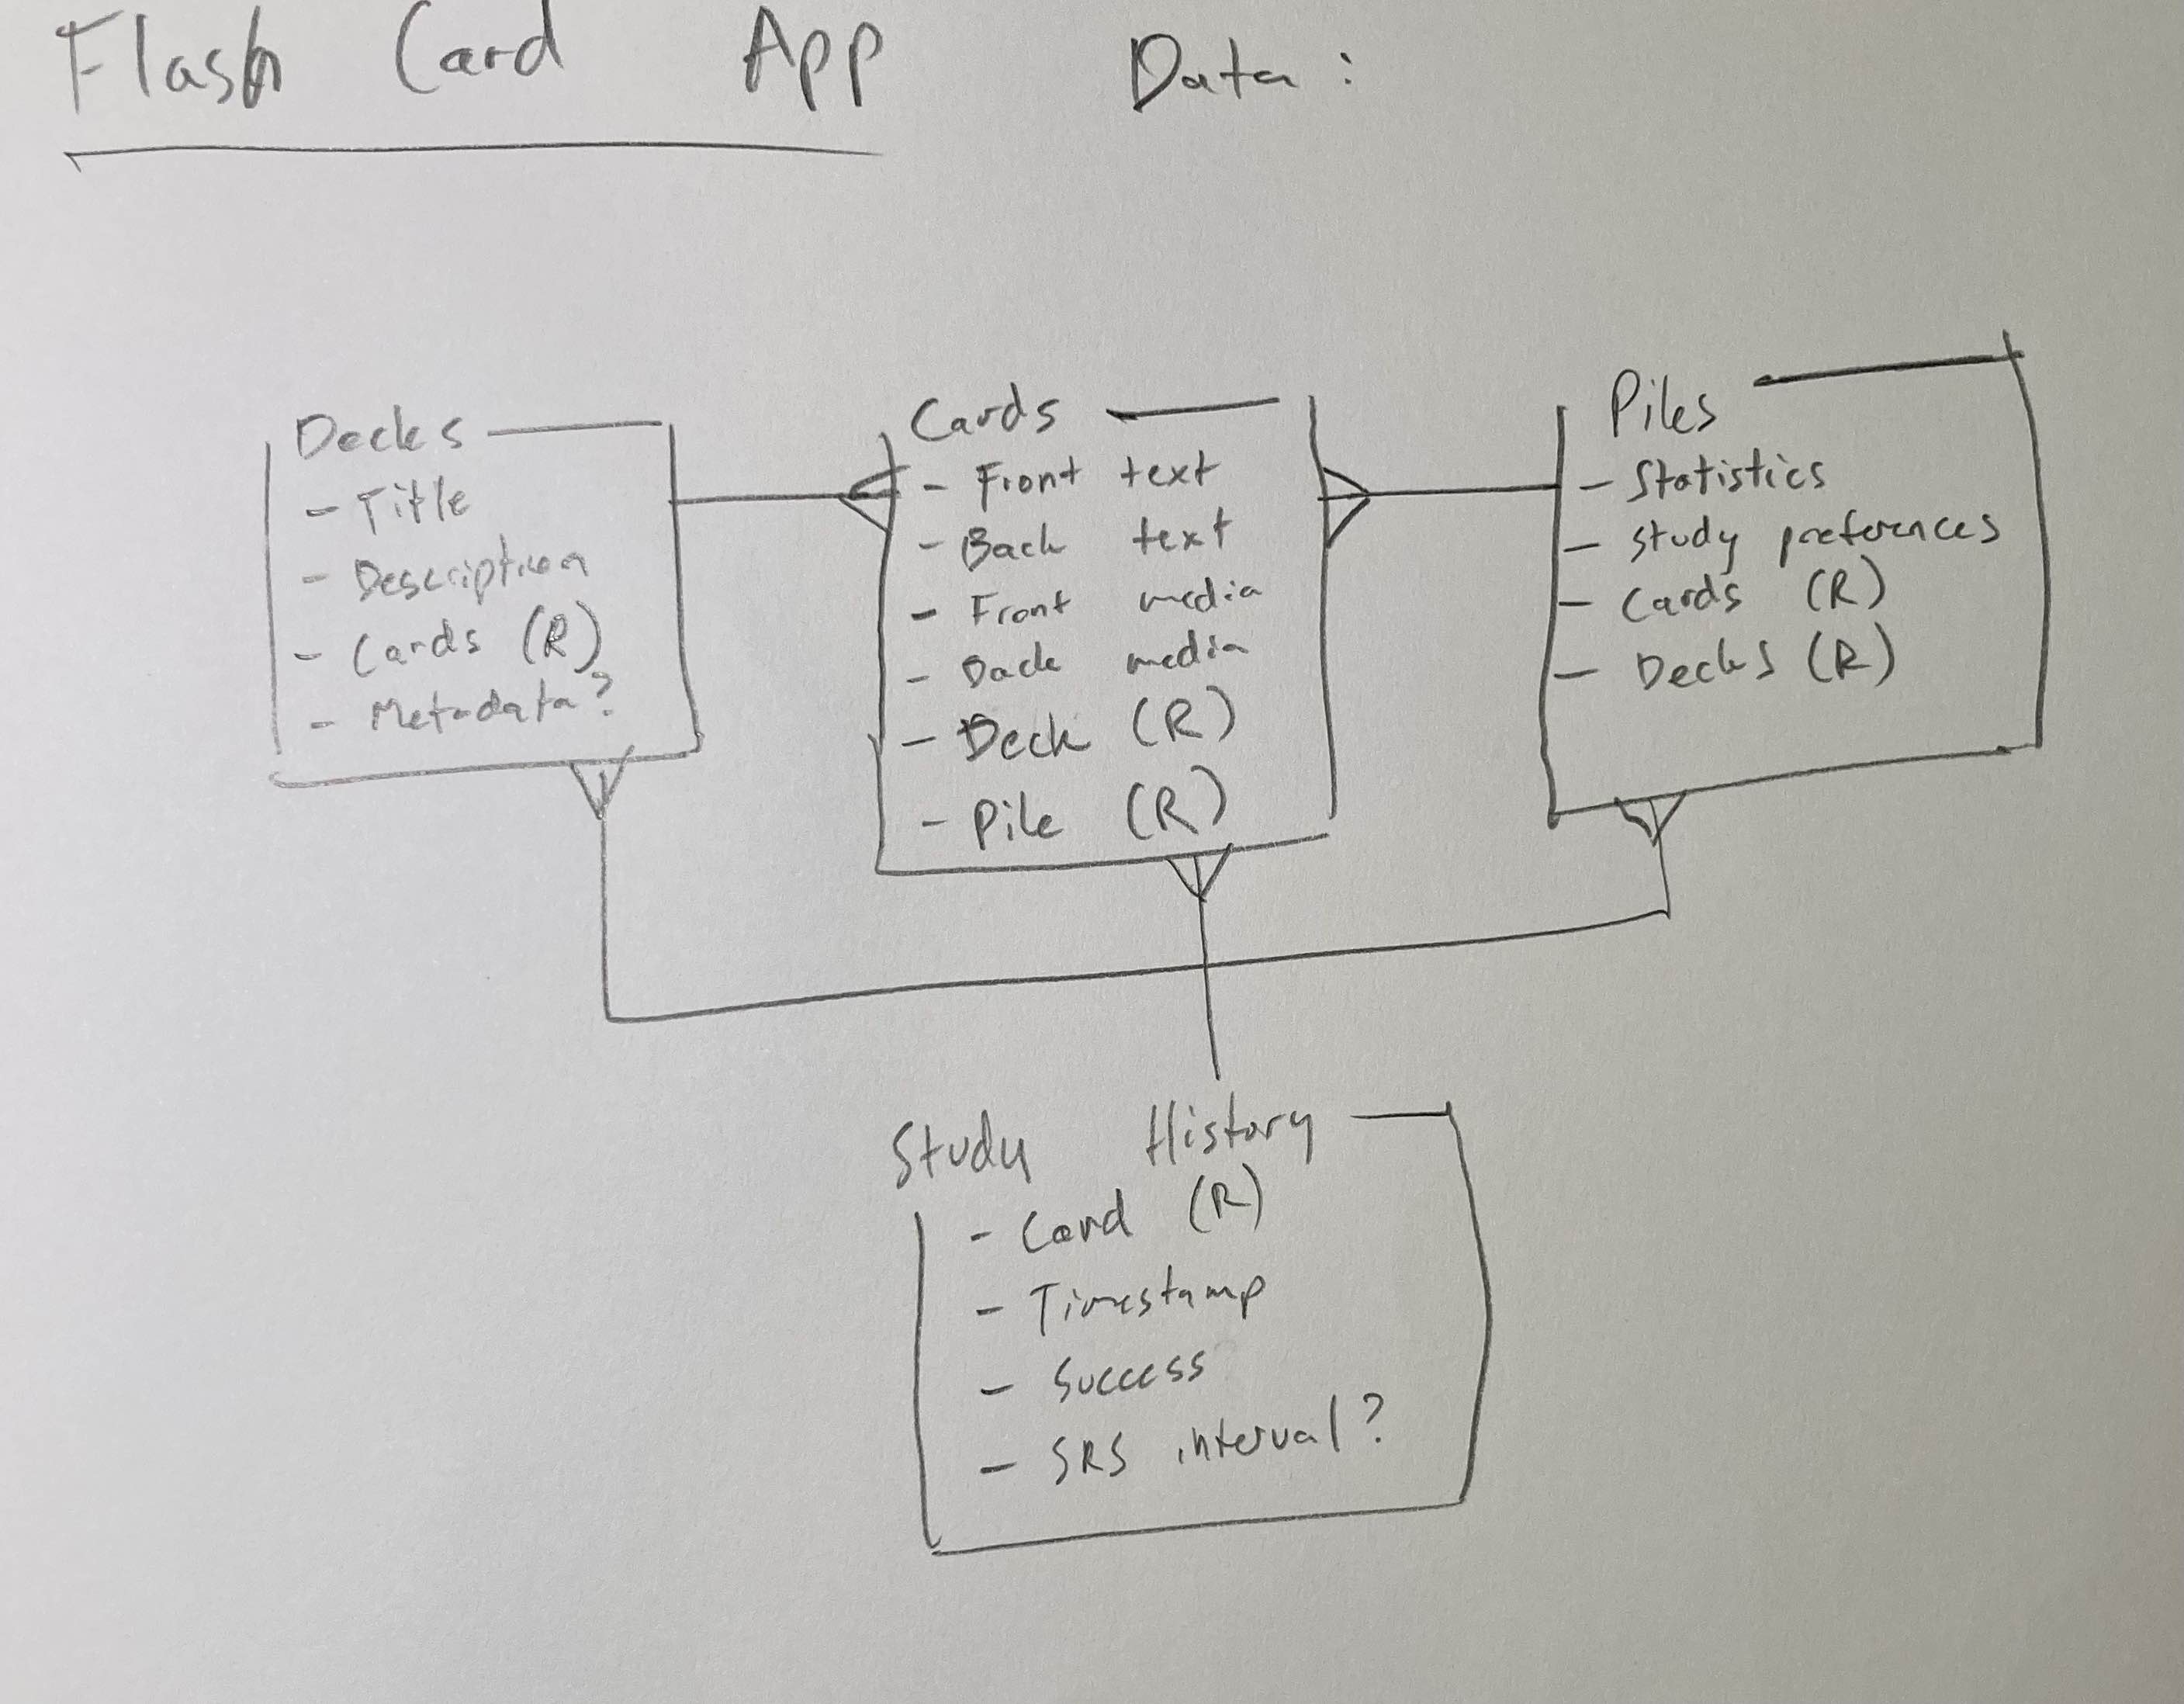 Flash Card App Data:
Decks
- Title
- Description
- Cards (R)
- Metadata?
Cards
- Front text
- Back text
- Front media
- Back media
- Deck (R)
- Pile (R)
Piles
- Statistics
- Study preferences
- Cards (R)
- Decks (R)
Study History
- Card (R)
- Timestamp
- Success
- SRS interval?